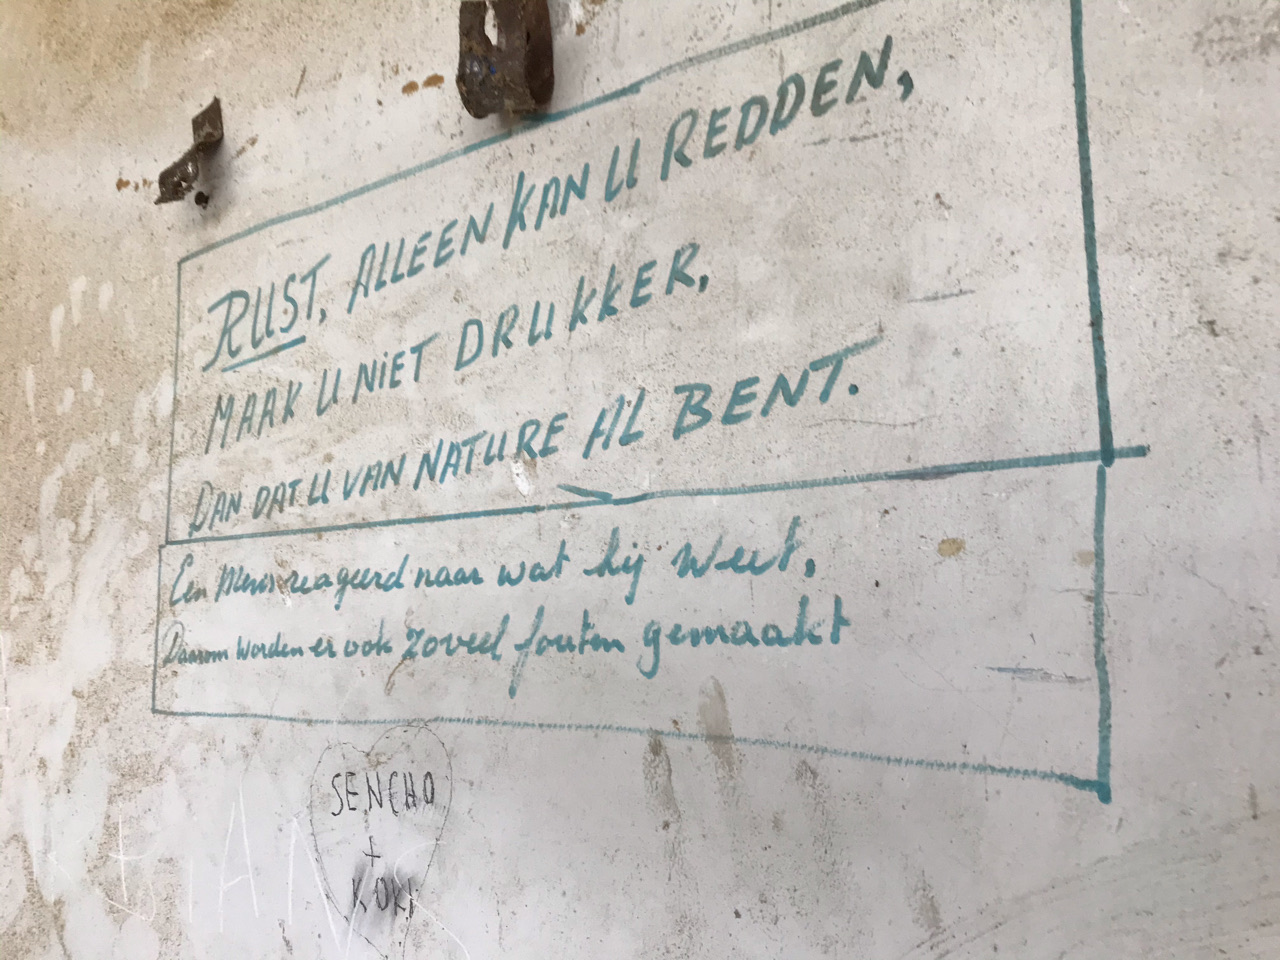 RUST, ALLEEN KAN U REDDEN,
MAAK U NIET DRUKKER,
DAN DAT U VAN NATURE AL BENT.
Een Mens reageerd naar wat hij weet,
Daarom worden er ook zoveel fouten gemaakt
SENCHO
+
KOKI